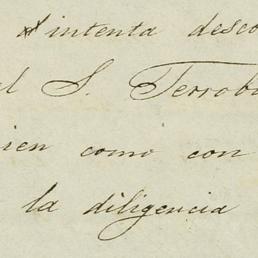 intenta desco
al S. Terrob
ien como con
la diligencia